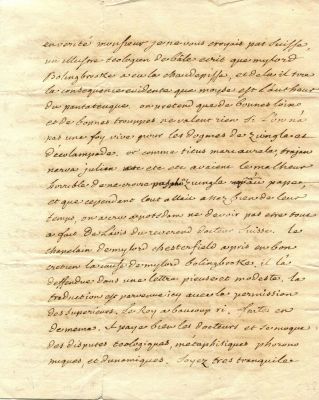 en verité monsieur je ne vous croyais pas suisse,
un illustre teologien de bâle ecrit que mylord
Bolingbrooke a eu la chaudepisse, et de la il tire
la consequence evidente que moyse est l'autheur
du pantateuque. on pretend que de bonnes loix
et de bonnes trouppes ne valent rien si l'on n'a
pas une foy vive pour les dogmes de zuingle et
d'ecolampade. or comme titus marc aurele, trajan
nerva julien etc etc avaient le malheur
horrible de ne croire zuingle
et que cependant tout allait assez bien de leur
temps, on a cru a potsdam ne devoir pas etre tout
a fait de l'avis du reverend docteur suisse. Le
chapelain de mylord chesterfield a pris en bon
cretien la cause de mylord bolingbrooke. il l'a
deffendue dans une lettre pieuse et modeste. la
traduction est parvenue icy avec la permission
des superieurs. Le Roy a beaucoup ri. faites en
de meme. Il paye bien les docteurs et se moque
des disputes teologiques, metaphisiques phoronomiques, et dunamiques. Soyez tres tranquile